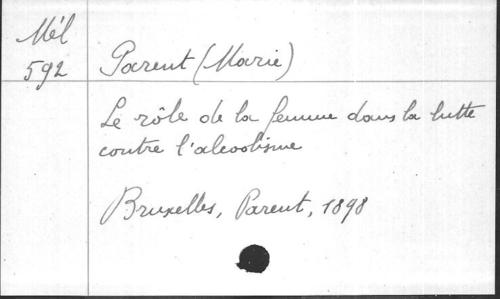 Mél
592
Parent (Marie)
Le rôle de la femme dans la lutte
contre l'alcoolisme
Bruxelles, Parent, 1898